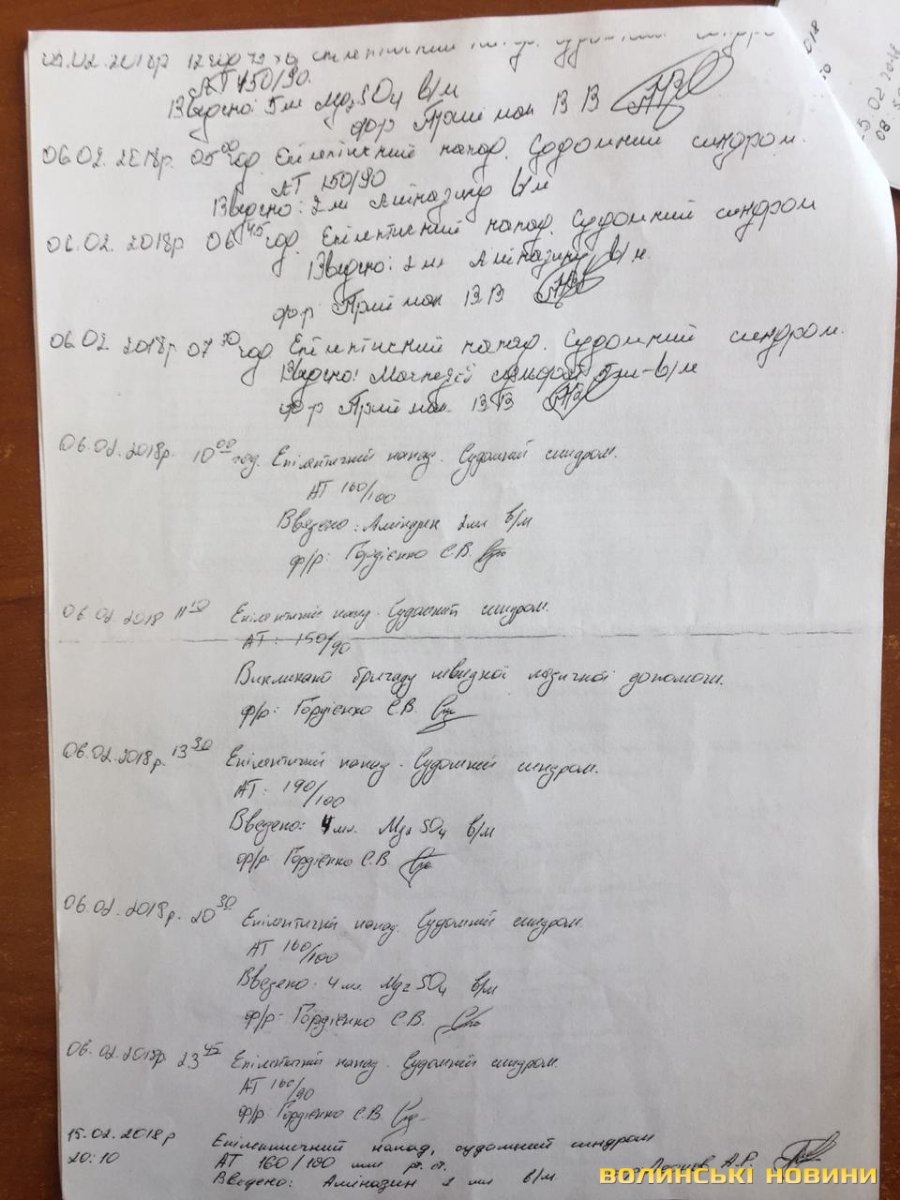 АТ 150/90.
Введено: 5 мл Mg2SO4 в/м
ф/р Приймак В В
06.02. 2018р. 05 00 год. Епілептичний напад. Судомний синдром.
АТ 150/90
Введено: 2 мл Аміназину в/м
06.02. 2018р 06 45 год. Епілептичний напад. Судомний синдром
Введено: 2 мл Аміназину в/м.
ф/р Приймак В В
06.02 2018р 07 30 год Епілептичний напад. Судомний синдром.
Введено: Магнезії сульфат 5мл-в/м
ф/р Приймак В В
06.02.2018р. 10 00 год. Епілептичний напад. Судомний синдром.
АТ 160/100
Введено: Аміназин 2мл в/м
ф/р: Гордієнко С.В.
06.02.2018 11 10 Епілептичний напад. Судомний синдром.
АТ: 150/90
Викликано бригаду швидкої медичної допомоги.
ф/р: Гордієнко С.В.
06.02.2018р. 13 30 Епілептичний напад. Судомний синдром.
АТ: 190/100
Введено: 4 мл. Mg2 SO4 в/м
ф/р Гордієнко С.В.
06.02.2018р. 20 30 Епілептичний напад. Судомний синдром.
АТ 160/100
Введено: 4 мл Mg2 SO4 в/м
ф/р: Гордієнко С.В.
06.02.2018р. 23 45 Епілептичний напад. Судомний синдром.
АТ 160/90
ф/р: Гордієнко С.В.
15.02.2018р
20:10 Епілептичний напад, судомний синдром
АТ 160/100 мм рт. ст.
Введено: Аміназин 2 мл в/м А.Р.
ВОЛИНСЬКІ НОВИНИ